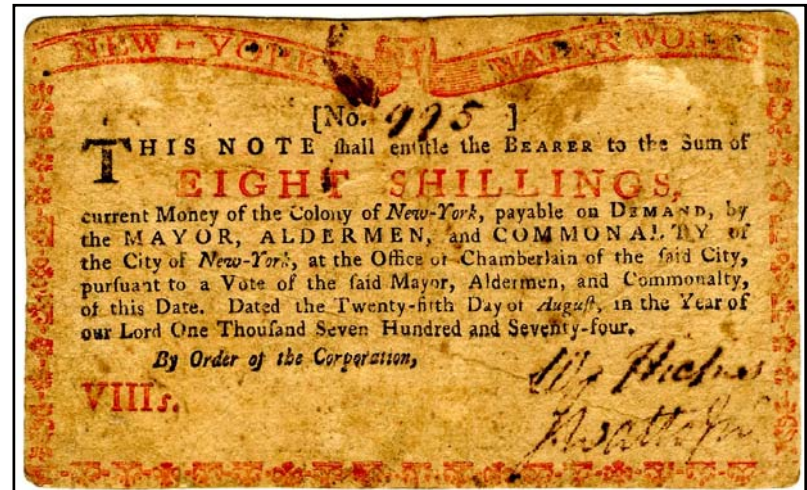 NEW-YORK WATER WORKS
[No. 995 ]
THIS NOTE ſhall entitle the BEARER to the Sum of
EIGHT SHILLINGS,
current Money of the Colony of New-York, payable on DEMAND, by
the MAYOR, ALDERMEN, and COMMONALTY of
the City of New-York, at the Office of Chamberlain of the ſaid City,
purſuant to a Vote of the ſaid Mayor, Aldermen, and Commonalty,
of this Date. Dated the Twenty-fifth Day of Auguſt, in the Year of
our Lord One Thouſand Seven Hundred and Seventy-four.
By Order of the Corporation,
VIIIs.